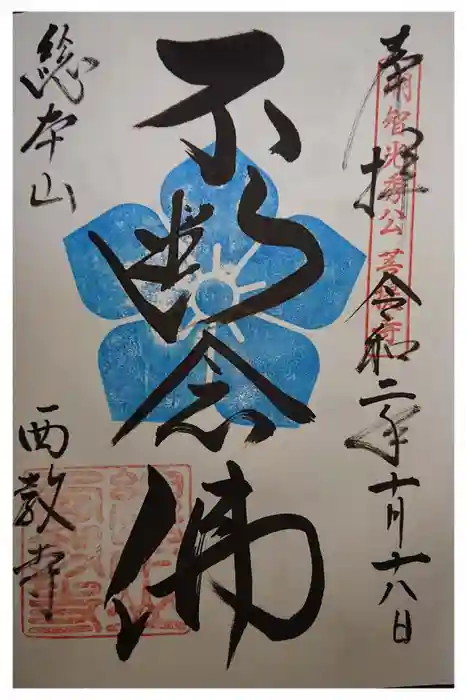 奉拝
明智光秀公菩提寺
令和二年十月十八日
不断念佛
総本山
西教寺